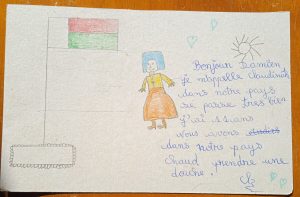 Bonjour Damien
je m'appelle Claudinah
dans notre pays
se passe très bien
j'ai 11 ans
vous avons
dans notre pays
chaud prendre une
douche.